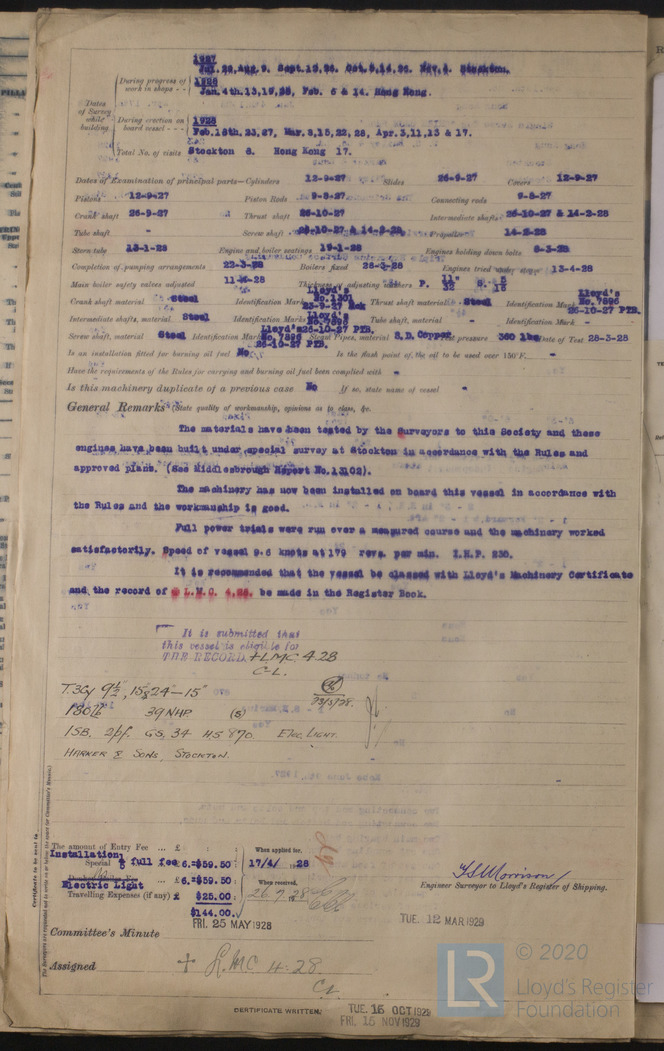 1927
Jul.28, Aug.9. Sept.15,26. Oct.5,14,26. Nov.4. Stockton.
During progress of
work in shops - -
1928
Jan.4th,13,19,28, Feb. 6 & 14. Hong Kong.
Dates
of Survey
while
building
During erection on
board vessel - - -
1928
Feb.18th,23,27, Mar.8,15,22,28, Apr.3,11,13 & 17.
Total No. of visits Stockton 8. Hong Kong 17.
Dates of Examination of principal parts—Cylinders 12-9-27 Slides 26-9-27 Covers 12-9-27
Pistons 12-9-27 Piston Rods 9-8-27 Connecting rods 9-8-27
Crank shaft 26-9-27 Thrust shaft 26-10-27 Intermediate shafts 26-10-27 & 14-2-28
Tube shaft - Screw shaft 26-10-27 & 14-2-28 Propeller 14-2-28
Stern tube 13-1-28 Engine and boiler seatings 19-1-28 Engines holding down bolts 8-3-28
Completion of pumping arrangements 22-3-28 Boilers fixed 26-3-28 Engines tried under steam 13-4-28
Main boiler safety valves adjusted 11-4-28 Thickness of adjusting washers P. 11/32" S. 5/16"
Crank shaft material Steel Identification Mark Lloyd's No.1301 23-9-27 Thrust shaft material Steel Identification Mark Lloyd's No.7896 26-10-27 PTB.
Intermediate shafts, material Steel Identification Marks Lloyd's No.7896 26-10-27 PTB. Tube shaft, material - Identification Mark -
Screw shaft, material Steel Identification Mark Lloyd's No.7896 26-10-27 PTB. Steam Pipes, material S.D.Copper Test pressure 360 lbs Date of Test 28-3-28
Is an installation fitted for burning oil fuel No Is the flash point of the oil to be used over 150°F. -
Have the requirements of the Rules for carrying and burning oil fuel been complied with -
Is this machinery duplicate of a previous case No If so, state name of vessel -
General Remarks (State quality of workmanship, opinions as to class, &c.
The materials have been tested by the Surveyors to this Society and these
engines have been built under special survey at Stockton in accordance with the Rules and
approved plans. (See Middlesbrough Report No.13102).
The machinery has now been installed on board this vessel in accordance with
the Rules and the workmanship is good.
Full power trials were run over a measured course and the machinery worked
satisfactorily. Speed of vessel 9.6 knots at 179 revs. per min. I.H.P. 230.
It is recommended that the vessel be classed with Lloyd's Machinery Certificate
and the record of + L.M.C. 4,28. be made in the Register Book.
It is submitted that
this vessel is eligible for
THE RECORD. + LMC 4.28
C.L.
T.3Cy 9½", 15⅞ 24"—15"
180lb 39NHP. (s)
23/5/28.
1SB, 2pf. GS.34 HS 870. Elec. Light.
HARKER & SONS, STOCKTON.
Certificate to be sent to
The amount of Entry Fee ... £
Installation;
Special ⅔ full fee £6.=$59.50
Electric Light £6.=$59.50
Travelling Expenses (if any) £ $25.00
$144.00
When applied for,
17/4/1928
When received,
26.9.28
Engineer Surveyor to Lloyd's Register of Shipping.
FRI. 25 MAY 1928
TUE. 12 MAR 1929
Committee's Minute
Assigned + L.M.C. 4.28
C.L.
CERTIFICATE WRITTEN.
TUE. 15 OCT 1929
FRI. 15 NOV 1929
LR
© 2020
Lloyd's Register
Foundation